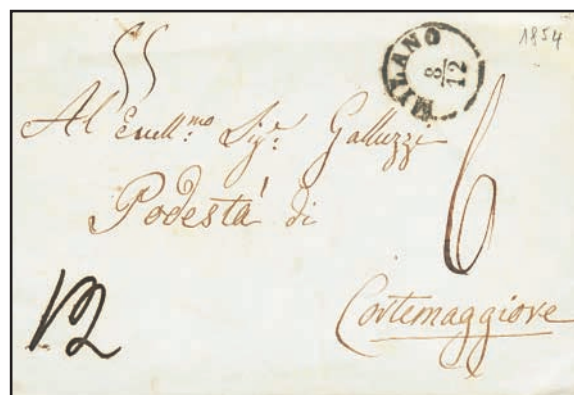 1854
MILANO
8
12
Al Eccell.mo Sig.e Galluzzi
Podestà di
6
Cortemaggiore
12